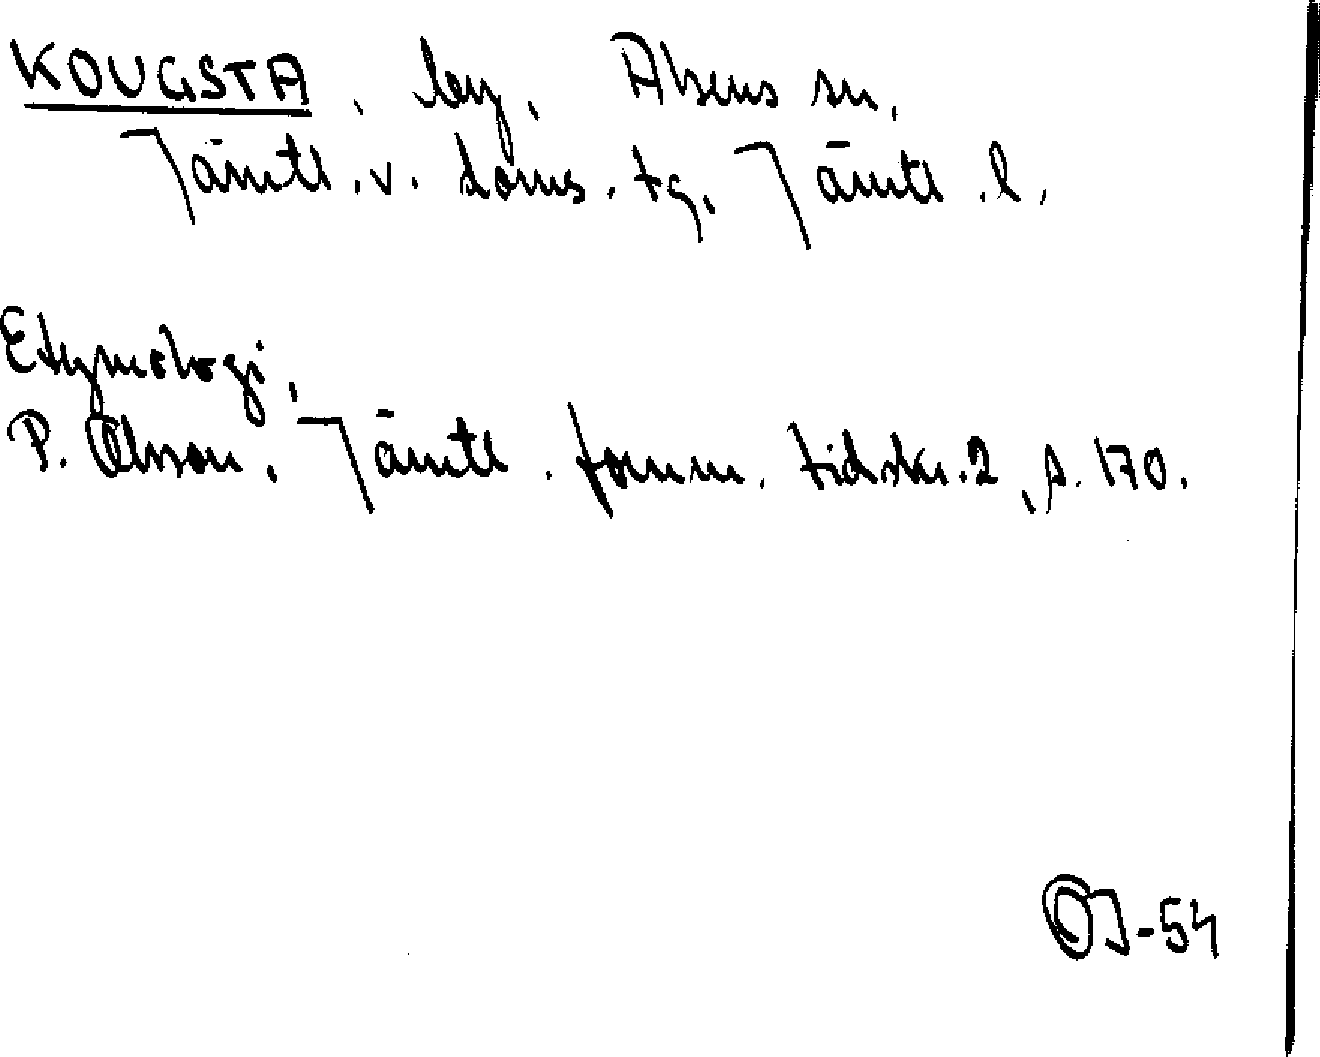 KOUGSTA, by, Alsens sn,
Jämtl. v. doms. tg, Jämtl. l.
Etymologi,
P. Olsson, Jämtl. fornm. tidskr. 2, s. 170.
OJ-54